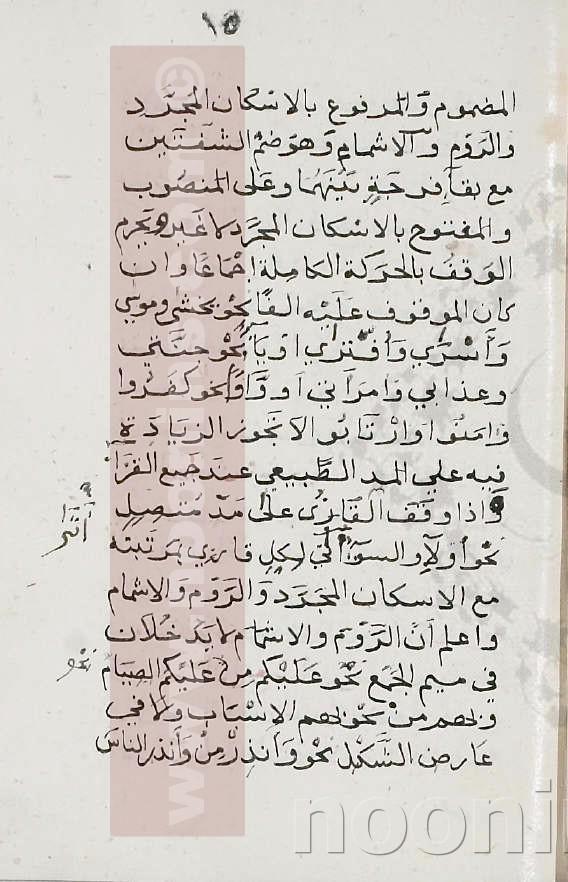 ١٥
المضموم والمرفوع بالاسكان المجرَّد
والرَّوم والاشمام وهو ضمُّ الشفتين
مع بقا فرجةٍ بينهما وعلى المنصوب
والمفتوح بالاسكان المجرَّد لا غير ويحرم
الوقف بالحركة الكاملة اجماعًا وان
كان الموقوف عليه الفًا نحو يخشى وموسى
وأسرى وافترى او ياً نحو جنَّتي
وعذابي وامرأتي او واوًا نحو كفروا
وامنوا وارتابوا لا تجوز الزيادة
فيه على المد الطبيعي عند جميع القرا
واذا وقف القارئ على مدّ متصل
نحو أولاء والسوء أتى لكل قارئ بمرتبته
أتى
مع الاسكان المجرَّد والرَّوم والاشمام
واعلم أنَّ الرَّوم والاشمام لا يدخلان
في ميم الجمع نحو عليكم من عليكم الصيام
نحو
وبهم من نحو بهم الاسباب ولا في
عارض الشكل نحو وأنذر من وأنذر الناس
noonin